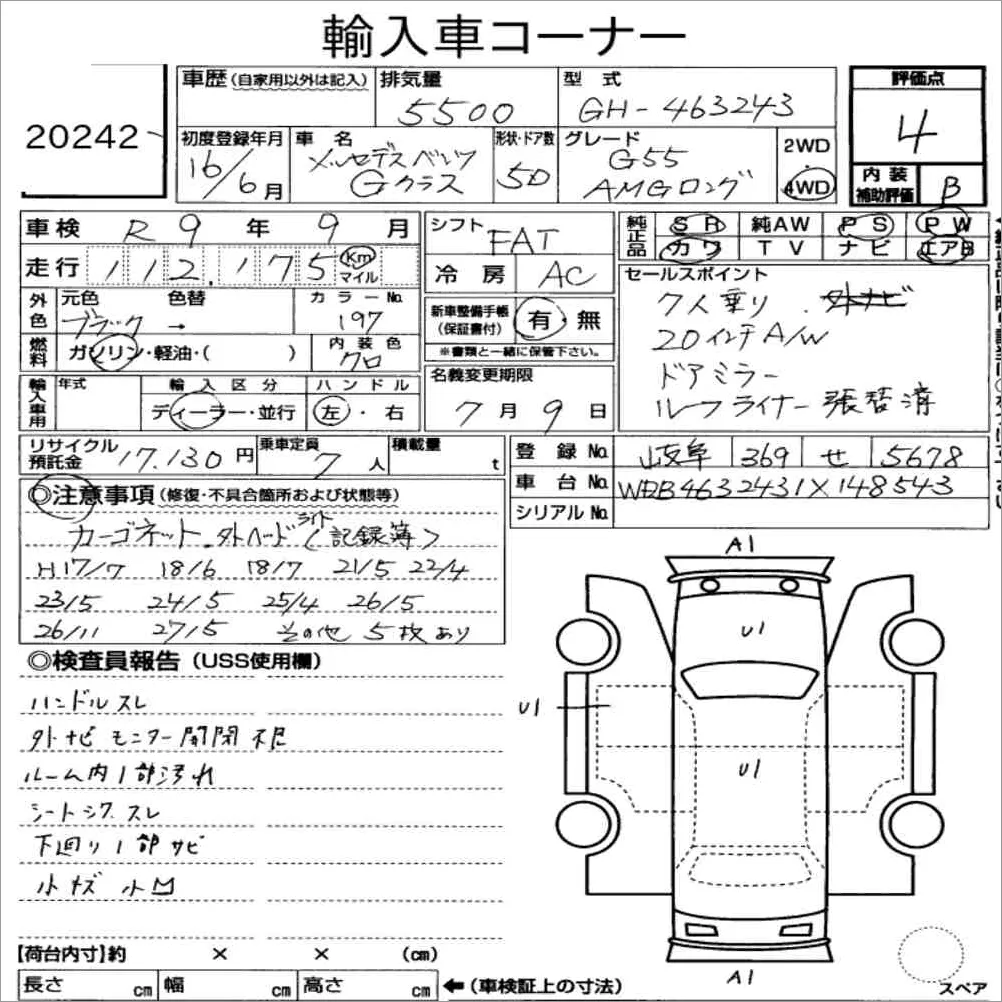 輸入車コーナー
20242
車歴(自家用以外は記入) 排気量 5500 型式 GH-463243 評価点 4
初度登録年月 16/6月 車名 メルセデスベンツ Gクラス 形状・ドア数 5D グレード G55 AMGロング 2WD・4WD 内装補助評価 B
車検 R9年9月 シフト FAT 純正品 SR 純AW PS PW
走行 112,175 Km マイル 冷房 AC カワ TV ナビ エアB
外色 元色 ブラック 色替 → カラーNo. 197 新車整備手帳(保証書付) 有・無 セールスポイント
※書類と一緒に保管下さい。
7人乗り . 外ナビ
20インチA/W
ドアミラー
ルーフライナー張替済
燃料 ガソリン・軽油・( ) 内装色 クロ
名義変更期限 7月9日
輸入車用 年式 輸入区分 ディーラー・並行 ハンドル 左・右
リサイクル預託金 17.130円 乗車定員 7人 積載量 t
登録No. 岐阜 369 せ 5678
車台No. WDB4632431X148543
シリアルNo.
◎注意事項(修復・不具合箇所および状態等)
カーゴネット.外ヘッドライト〈記録簿〉
H17/7 18/6 18/7 21/5 22/4
23/5 24/5 25/4 26/5
26/11 27/5 その他 5枚あり
◎検査員報告(USS使用欄)
ハンドルスレ
外ナビモニター開閉不良
ルーム内1部汚れ
シートシワ スレ
下廻り1部サビ
小キズ 小凹
A1
U1
U1
U1
A1
【荷台内寸】約 × × (cm)
長さ cm 幅 cm 高さ cm ←(車検証上の寸法)
スペア